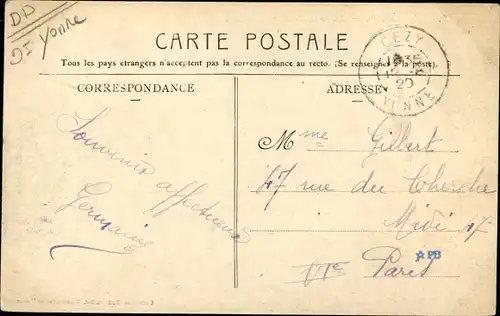 DD
Yonne
CARTE POSTALE
Tous les pays étrangers n'acceptent pas la correspondance au recto. (Se renseigner à la poste).
CORRESPONDANCE
ADRESSE
CEZY
20
YONNE
Souvenirs affectueux
Germaine
Mme Gilbert
47 rue du Cherche
Midi 47
VIe Paris
PB